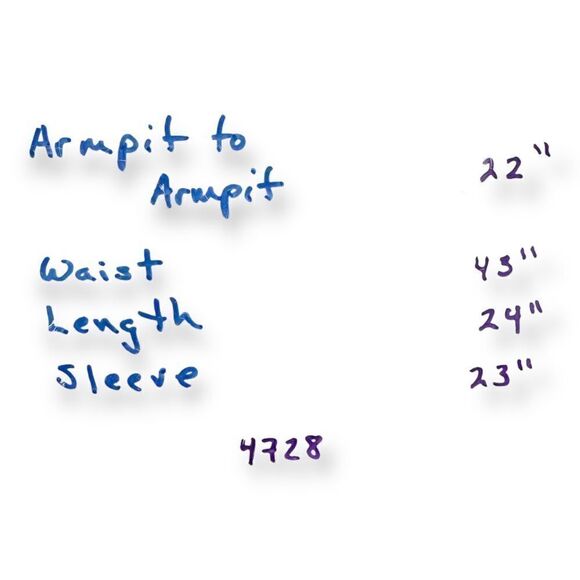 Armpit to
Armpit 22"
Waist 43"
Length 24"
Sleeve 23"
4728